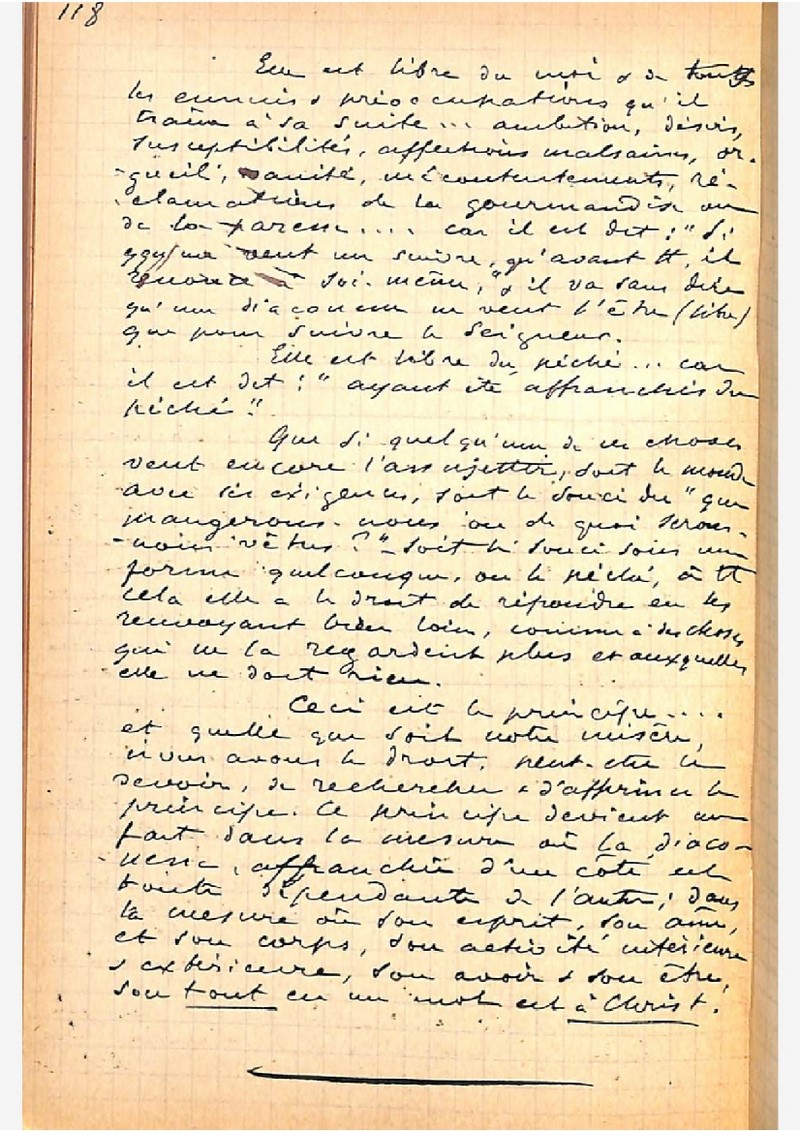 118
Elle est libre du moi & de toutes
les ennuis & préoccupations qu'il
traîne à sa suite... ambition, désirs,
susceptibilités, affections malsaines, or-
-gueil, vanité, mécontentements, ré-
-clamations de la gourmandise ou
de la paresse.... car il est dit : "Si
qqu'un veut me suivre, qu'avant tt, il
renonce à soi-même," & il va sans dire
qu'une diaconesse ne veut l'être (libre)
que pour suivre le Seigneur.
Elle est libre du péché... car
il est dit : "ayant été affranchis du
péché".
Que si quelqu'une de ces choses
veut encore l'assujettir, soit le monde
avec ses exigences, soit le souci du "que
mangerons-nous ou de quoi serons-
-nous vêtus ?" - soit le souci sous une
forme quelconque, ou le péché, à tt
cela elle a le droit de répondre en les
renvoyant bien loin, comme à des choses
qui ne la regardent plus et auxquelles
elle ne doit rien.
Ceci est le principe....
et quelle que soit notre misère,
nous avons le droit, peut-être le
devoir, de rechercher & d'affirmer le
principe. Ce principe devient un
fait dans la mesure où la diaco-
-nesse, affranchie d'un côté est
toute dépendante de l'autre ; dans
la mesure où son esprit, son âme,
et son corps, son activité intérieure
& extérieure, son avoir & son être,
son tout en un mot est à Christ.